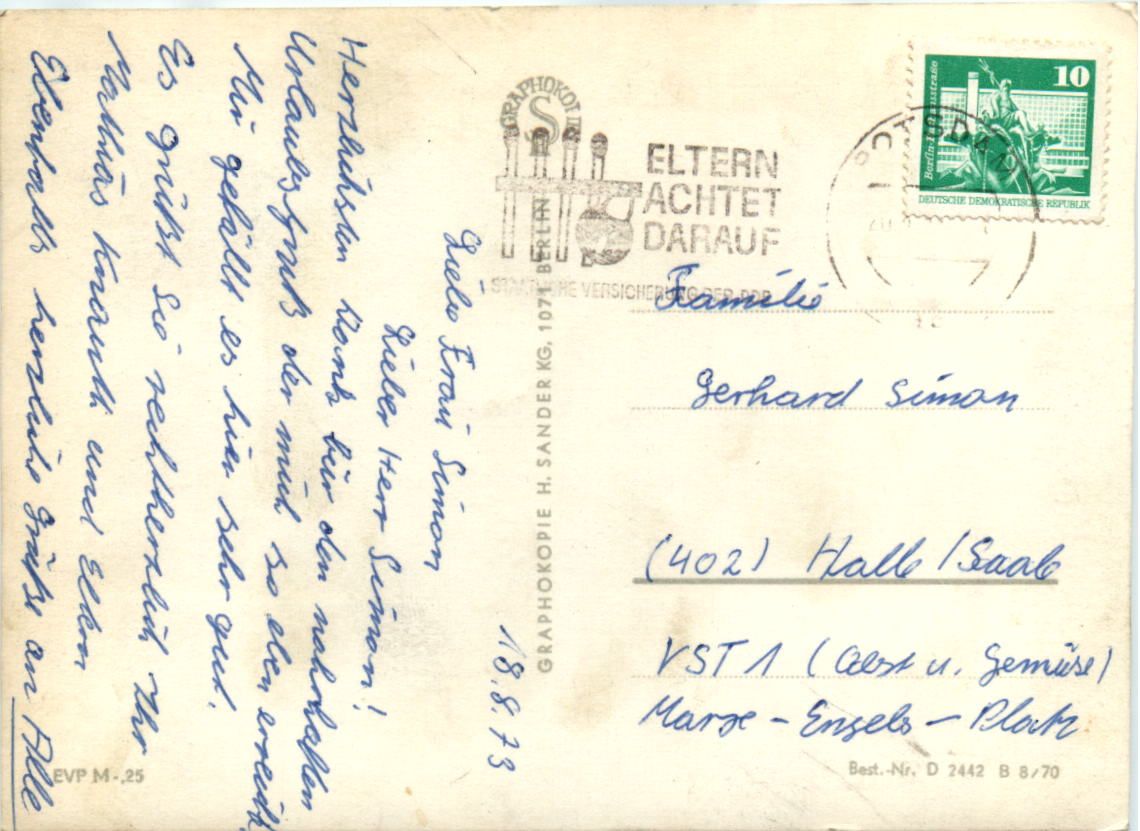 18.8.73
Liebe Frau Simon
Lieber Herr Simon!
Herzlichsten Dank für den nahrhaften
Urlaubsgruß der mich so eben erreicht.
Mir gefällt es hier sehr gut.
Es grüßt Sie recht herzlich Ihr
und Eltern
Ebenfalls herzliche Grüße an Alle
EVP M -,25
GRAPHOKOPIE
GRAPHOKOPIE H. SANDER KG, 1071 BERLIN
ELTERN
ACHTET
DARAUF
STAATLICHE VERSICHERUNG DER DDR
POTSDAM
10
Berlin-Rathausstraße
DEUTSCHE DEMOKRATISCHE REPUBLIK
Familie
Gerhard Simon
(402) Halle/Saale
VST 1 (Obst u. Gemüse)
Marx-Engels-Platz
Best.-Nr. D 2442 B 8/70